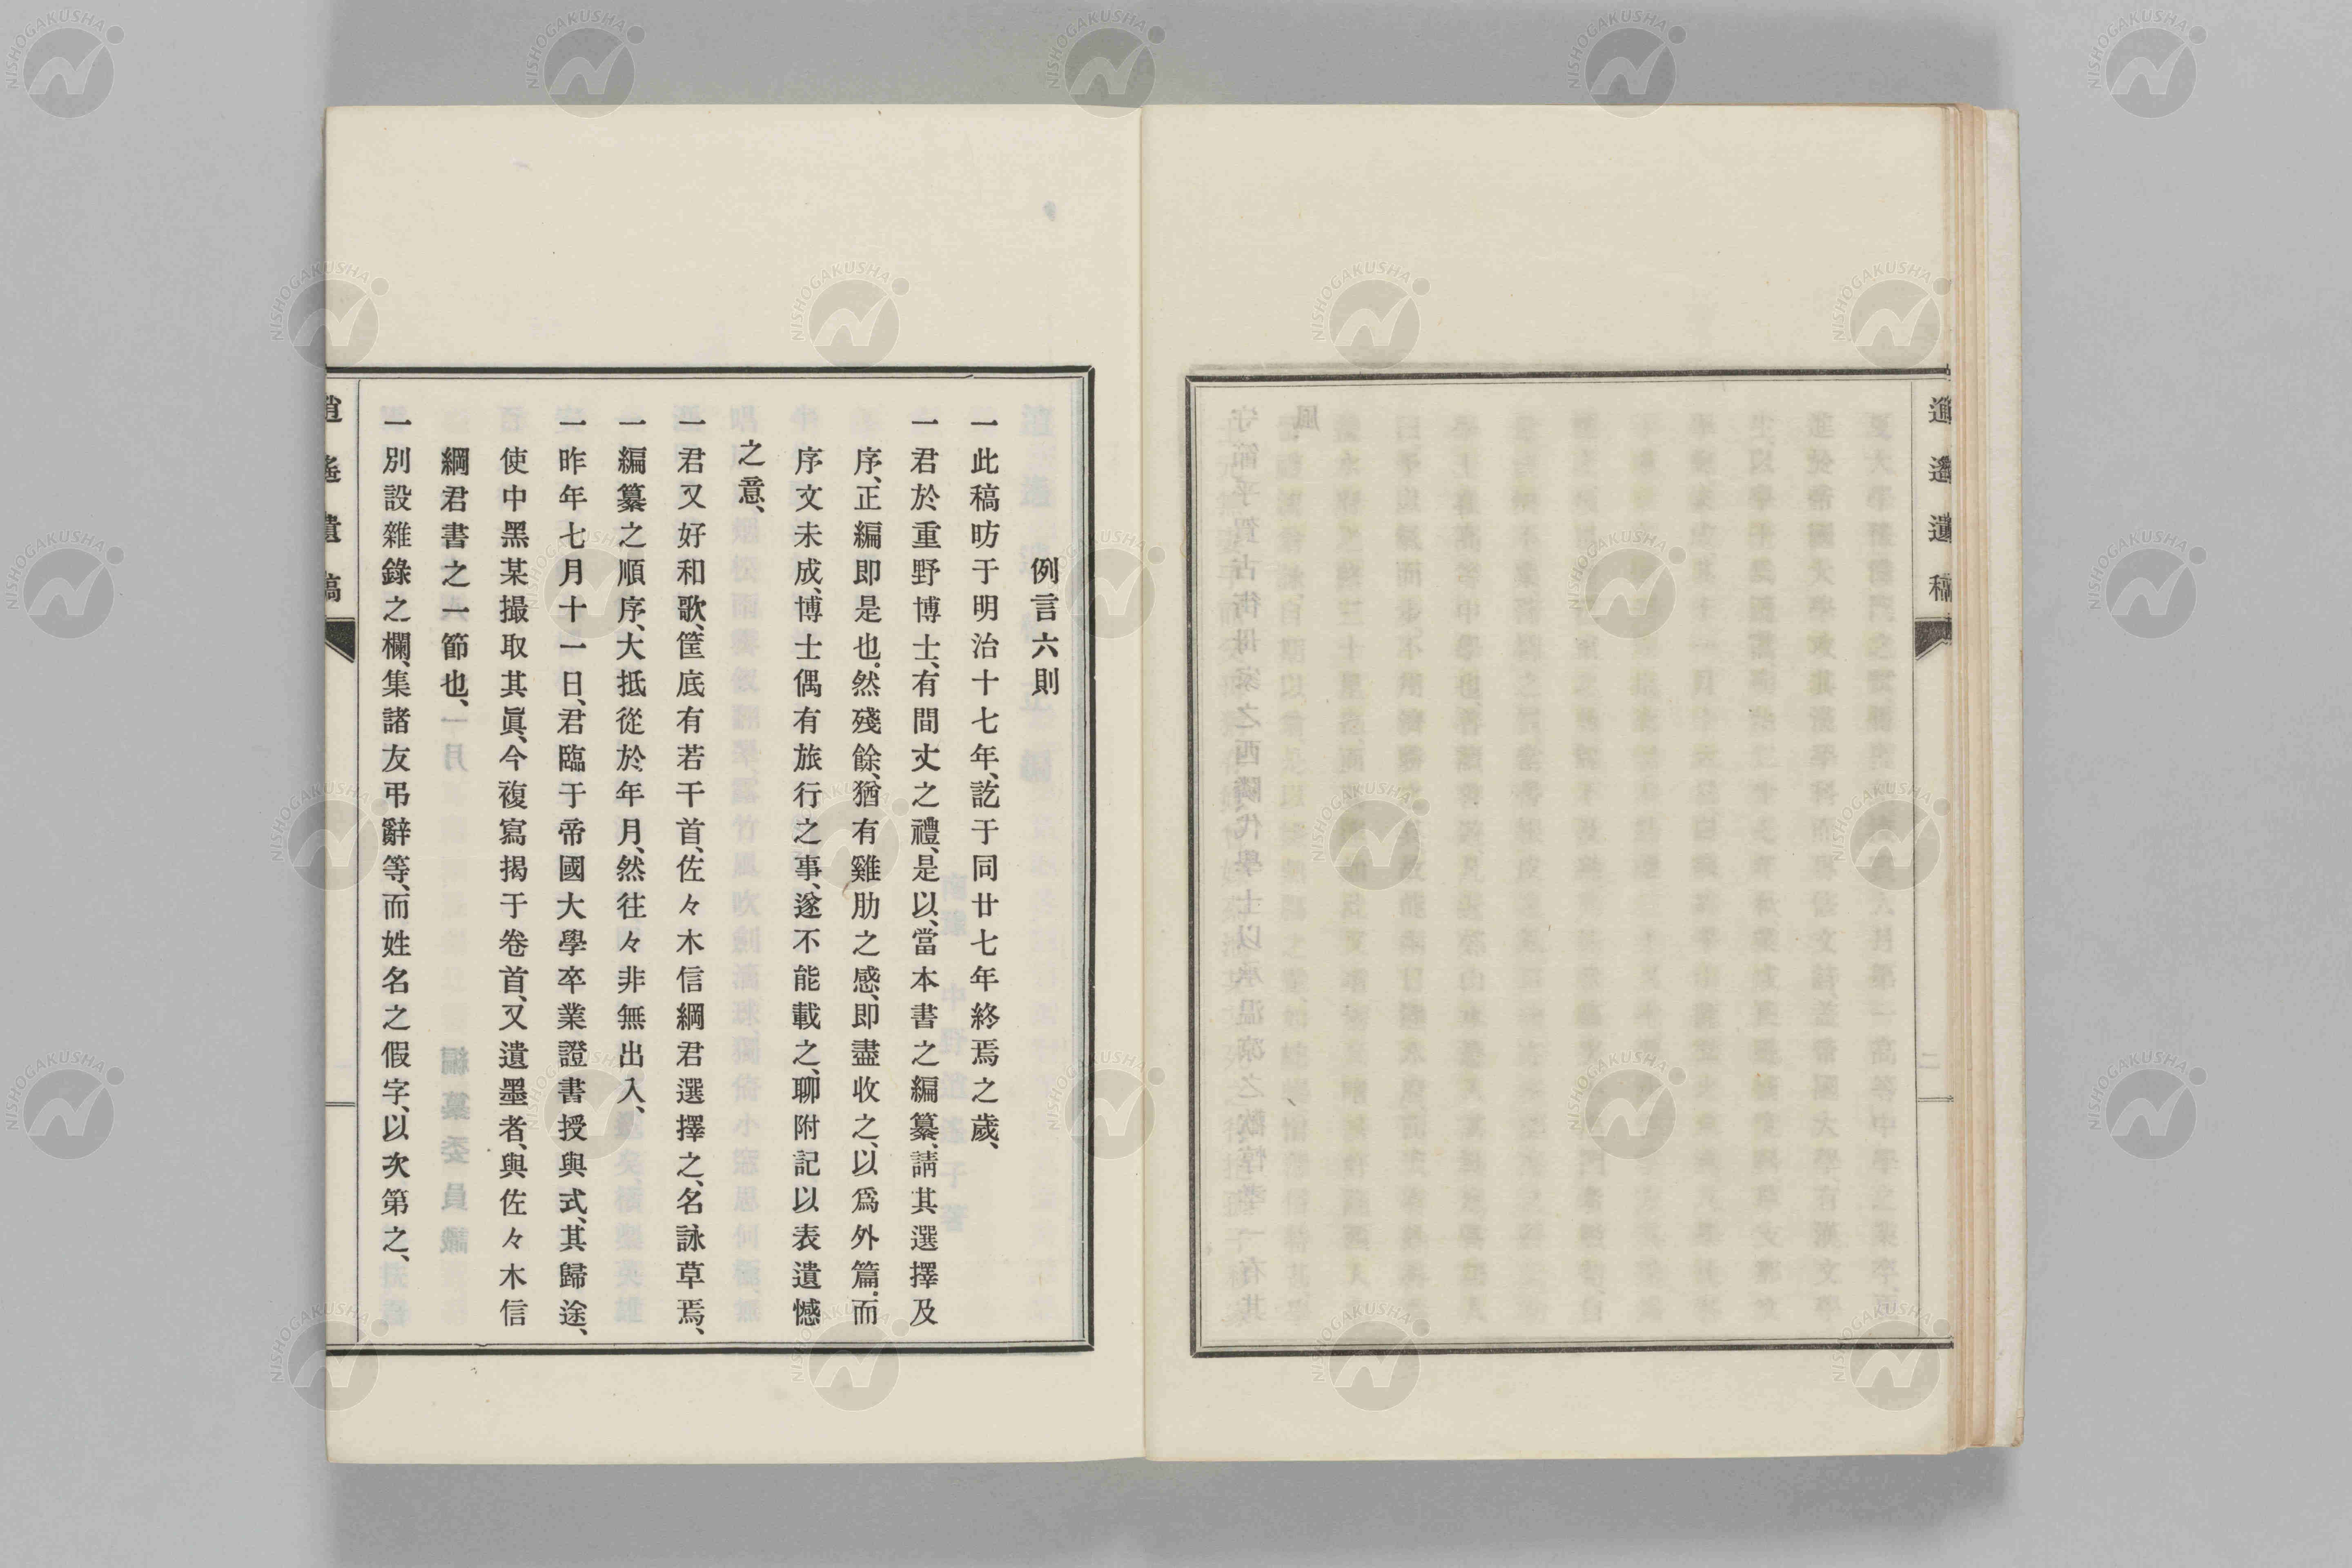 逍遙遺稿
二
例言六則
一此稿昉于明治十七年、訖于同廿七年終焉之歲、
一君於重野博士、有間丈之禮、是以、當本書之編纂、請其選擇及
序、正編即是也。然殘餘、猶有雞肋之感、即盡收之、以爲外篇。而
序文未成、博士偶有旅行之事、遂不能載之、聊附記以表遺憾
之意、
一君又好和歌、筐底有若干首、佐々木信綱君選擇之、名詠草焉、
一編纂之順序、大抵從於年月、然往々非無出入、
一昨年七月十一日、君臨于帝國大學卒業證書授與式、其歸途、
使中黑某撮取其眞、今複寫揭于卷首、又遺墨者、與佐々木信
綱君書之一節也、
一別設雜錄之欄、集諸友弔辭等、而姓名之假字、以次第之、
逍遙遺稿
NISHOGAKUSHA